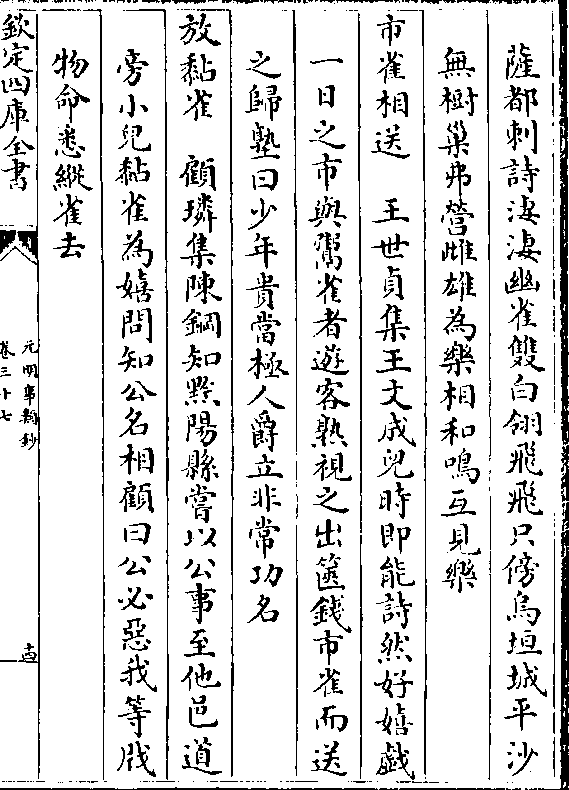 薩都剌詩淒淒幽雀雙白翎飛飛只傍烏垣城平沙
無樹巢弗營雌雄為樂相和鳴互見樂
市雀相送　王世貞集王文成兒時即能詩然好嬉戯
一日之市與鬻雀者遊客熟視之出篋錢市雀而送
之歸塾曰少年貴當極人爵立非常功名
放黏雀　顧璘集陳鋼知黟陽縣嘗以公事至他邑道
旁小兒黏雀為嬉問知公名相顧曰公必惡我等戕
物命悉縱雀去
欽定四庫全書
元明事類鈔
卷三十七